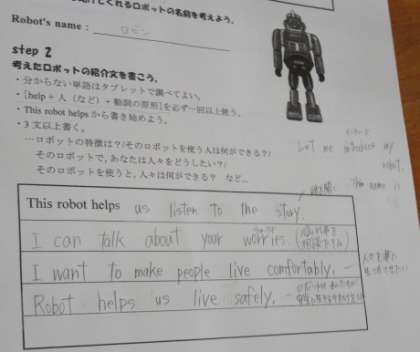 てくれるロボットの名前を考えよう。
Robot's name : ロビン
step 2
考えたロボットの紹介文を書こう。
・分からない単語はタブレットで調べてよい。
・[help + 人（など）+ 動詞の原形]を必ず一回以上使う。
・This robot helpsから書き始めよう。
・3文以上書く。
…ロボットの特徴は？/そのロボットを使う人は何ができる？/
そのロボットで，あなたは人々をどうしたい？/
そのロボットを使うと，人々は何ができる？ など…
Let me introduce my
robot.
The name is
This robot helps us listen to the stay.
I can talk about your worries.
I want to make people live comfortably.
Robot helps us live safely.